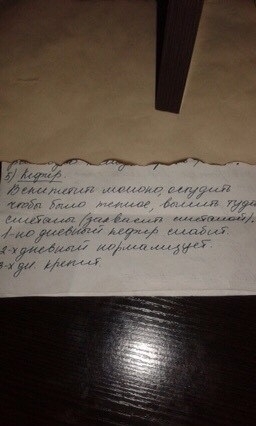 5) Кефир.
Вскипетить молоко, остудить
чтобы было теплое, вылить туда
сметаны (заквасить сметаной).
1-но дневный кефир слабит.
2-х дневный нормализует.
3-х дн. крепит.